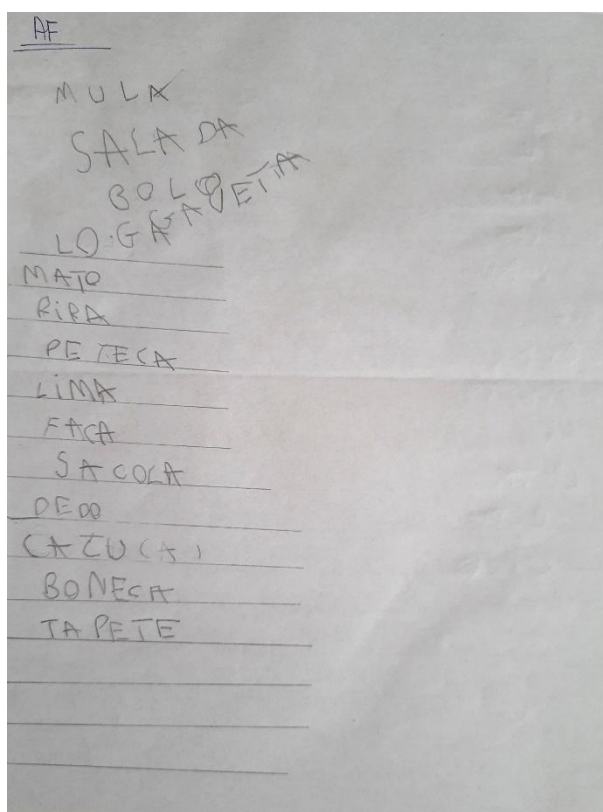 AF
MULA
SALADA
BOLO
GAVETA
LO.GA
MATO
RIPA
PETECA
LIMA
FACA
SACOLA
DEDO
CAZUCA
BONECA
TAPETE